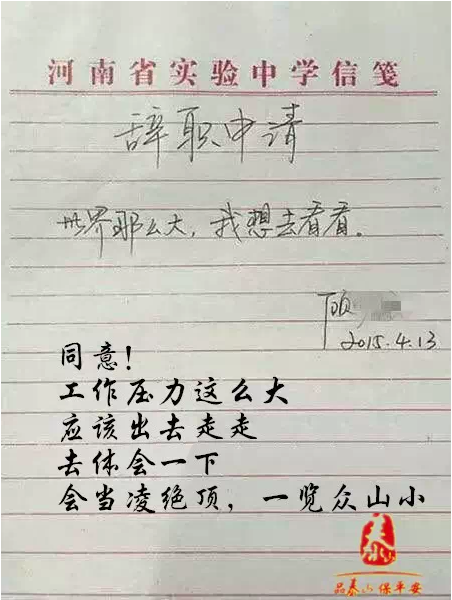 河南省实验中学信笺
辞职申请
世界那么大，我想去看看。
顾
2015.4.13
同意！
工作压力这么大
应该出去走走
去体会一下
会当凌绝顶，一览众山小
品泰山保平安